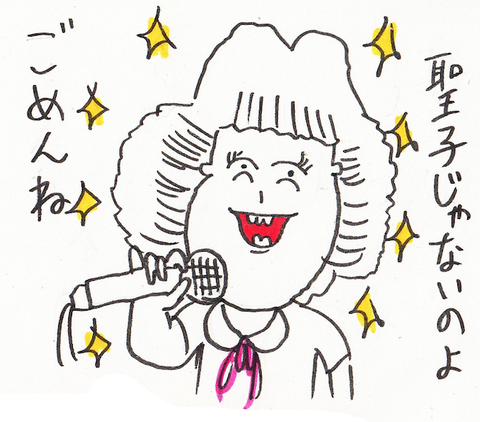 聖子じゃないのよ
ごめんね